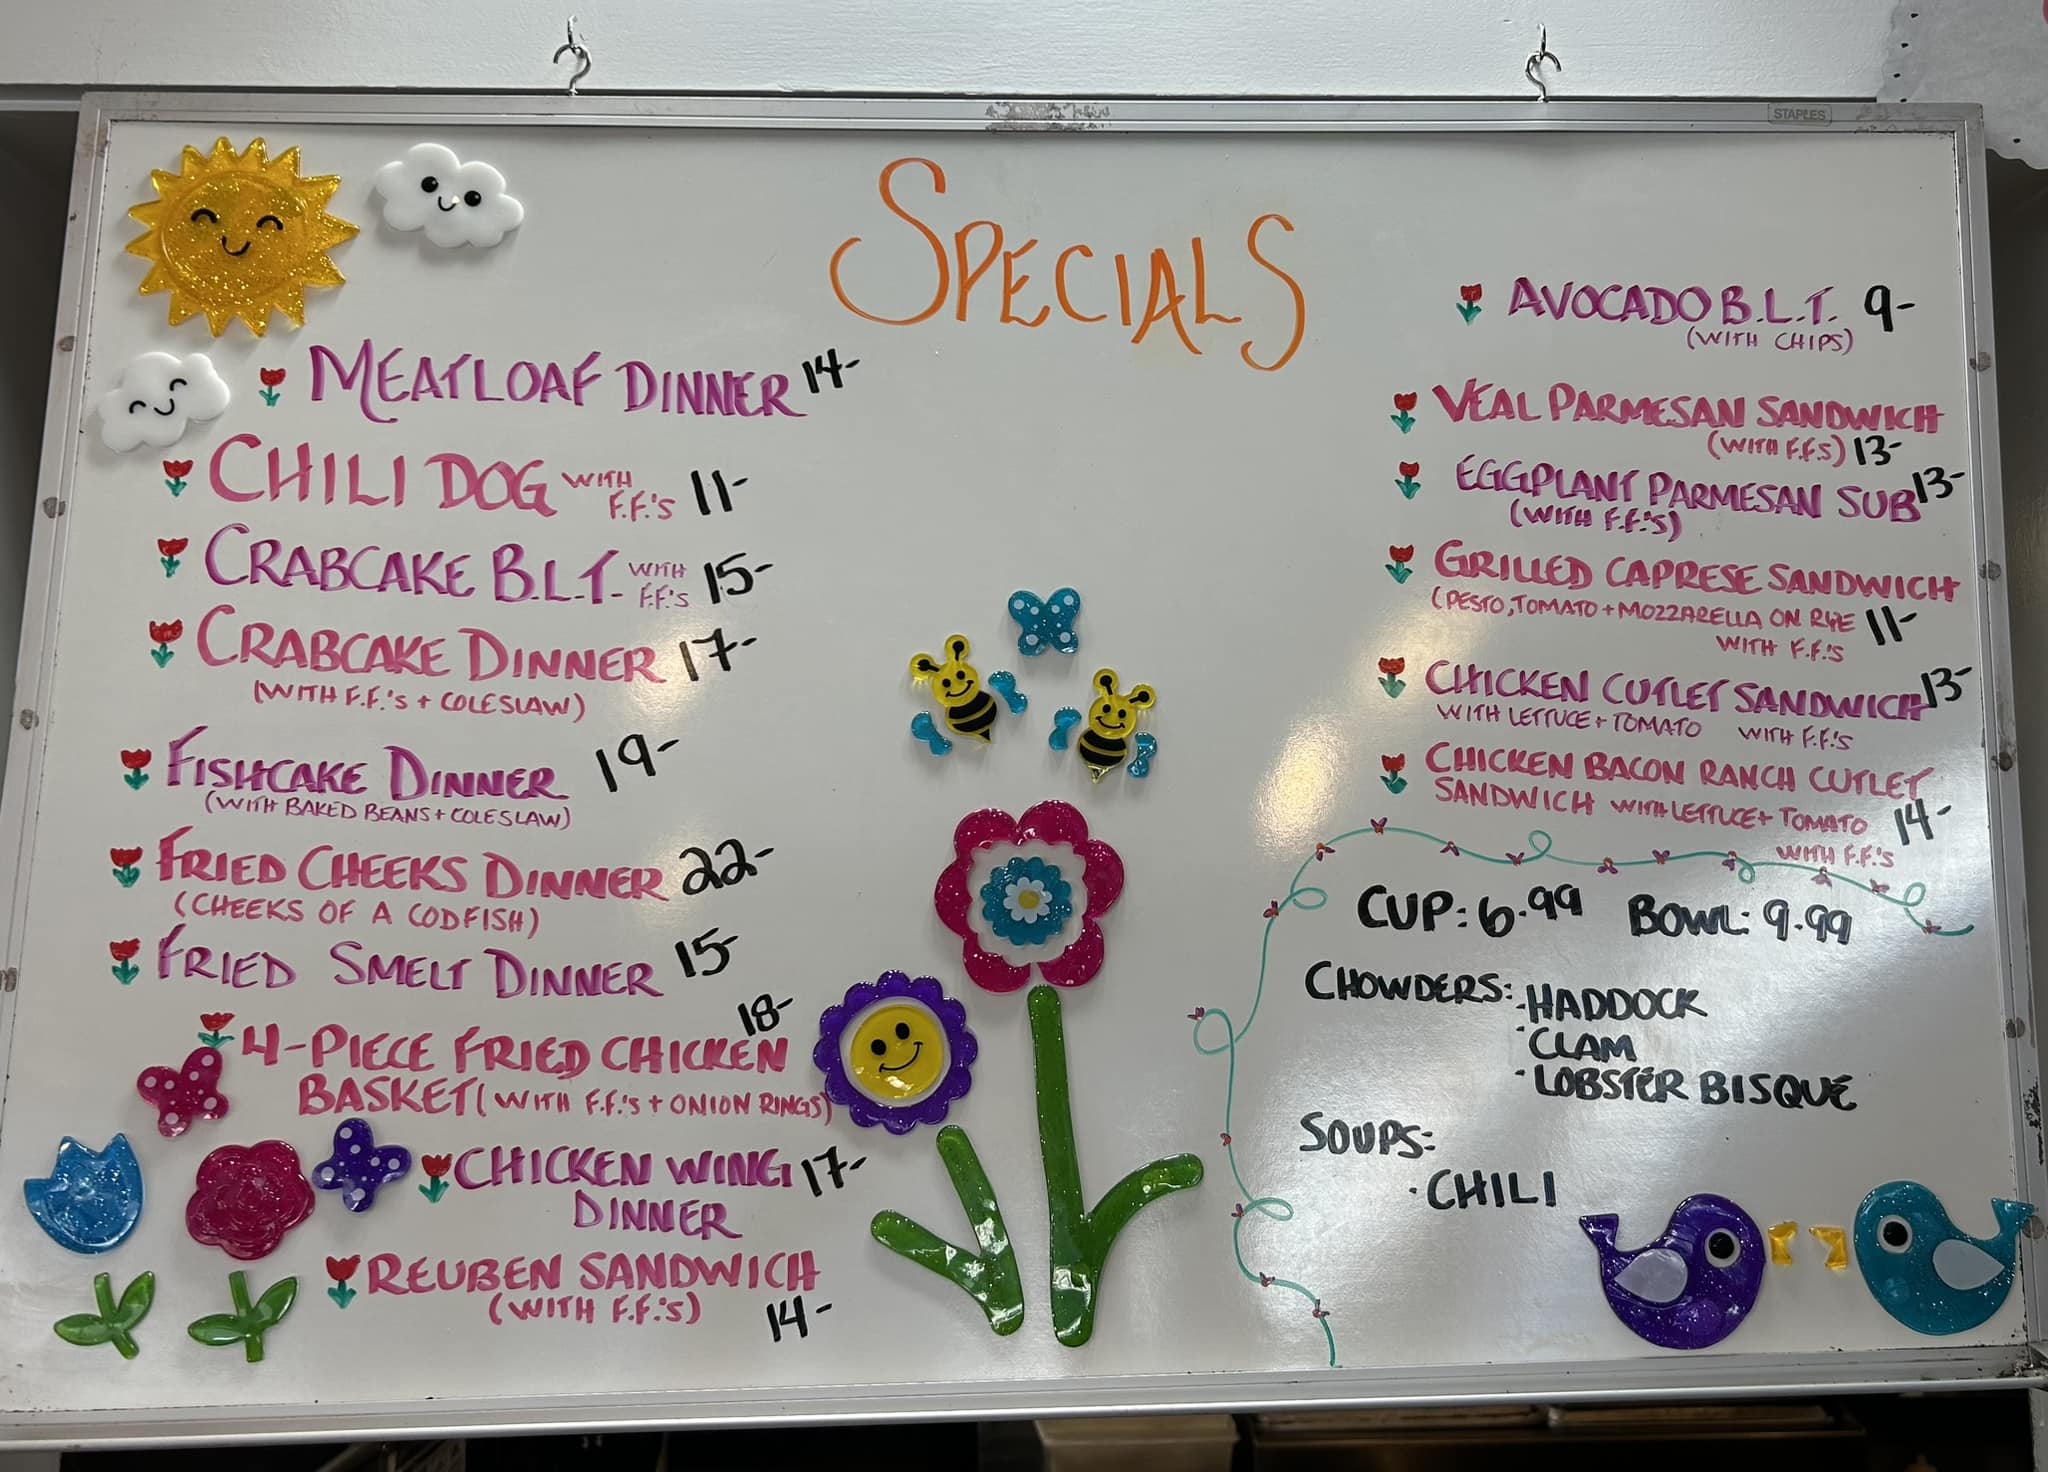 STAPLES
SPECIALS
MEATLOAF DINNER 14-
CHILI DOG WITH F.F.'S 11-
CRABCAKE B.L.T. WITH F.F.'S 15-
CRABCAKE DINNER 17-
(WITH F.F.'S + COLESLAW)
FISHCAKE DINNER 19-
(WITH BAKED BEANS + COLESLAW)
FRIED CHEEKS DINNER 22-
(CHEEKS OF A CODFISH)
FRIED SMELT DINNER 15-
18-
4-PIECE FRIED CHICKEN
BASKET (WITH F.F.'S + ONION RINGS)
CHICKEN WING 17-
DINNER
REUBEN SANDWICH
(WITH F.F.'S) 14-
AVOCADO B.L.T. 9-
(WITH CHIPS)
VEAL PARMESAN SANDWICH
(WITH F.F.S) 13-
EGGPLANT PARMESAN SUB 13-
(WITH F.F.'S)
GRILLED CAPRESE SANDWICH
(PESTO, TOMATO + MOZZARELLA ON RYE 11-
WITH F.F.'S
CHICKEN CUTLET SANDWICH 13-
WITH LETTUCE + TOMATO WITH F.F.'S
CHICKEN BACON RANCH CUTLET
SANDWICH WITH LETTUCE + TOMATO 14-
WITH F.F.'S
CUP: 6.99 BOWL: 9.99
CHOWDERS: · HADDOCK
· CLAM
· LOBSTER BISQUE
SOUPS:
· CHILI